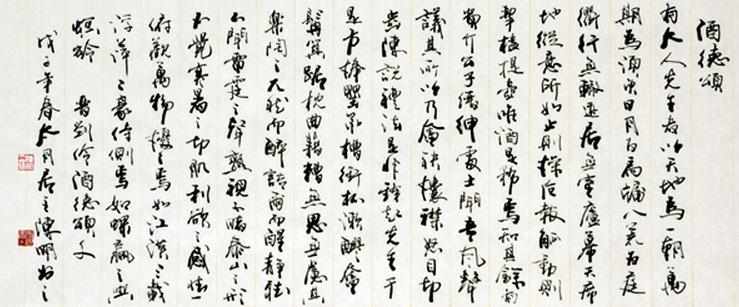 酒德頌
有大人先生者以天地為一朝萬
期為須臾日月為扃牖八荒為庭
衢行無轍跡居無室廬幕天席
地縱意所如止則操卮執觚動則
挈榼提壺唯酒是務焉知其餘有
貴介公子縉紳處士聞吾風聲
議其所以乃奮袂攘襟怒目切
齒陳說禮法是非鋒起先生于
是方捧罌承槽銜杯漱醪奮
髯箕踞枕曲藉糟無思無慮其
樂陶陶兀然而醉豁爾而醒靜聽
不聞雷霆之聲熟視不睹泰山之形
不覺寒暑之切肌利欲之感情
俯觀萬物擾擾焉如江漢之載
浮萍二豪侍側焉如蜾蠃之與
螟蛉 晉劉伶酒德頌文
戊子年春大月居主陳明之